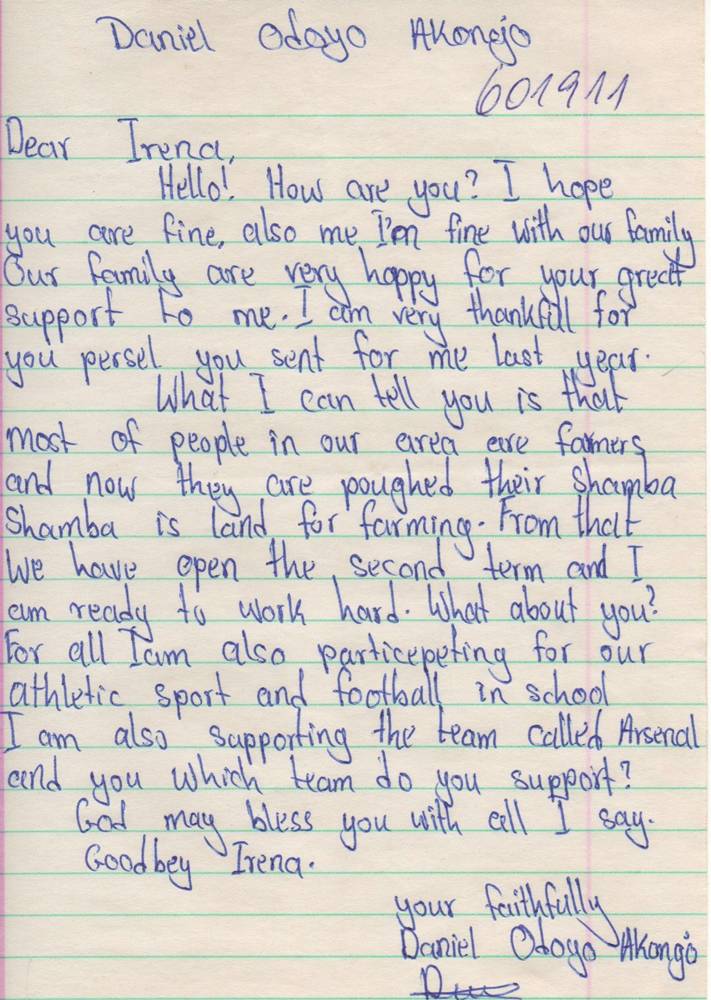 Daniel Odoyo Akongo
601911
Dear Irena,
Hello! How are you? I hope
you are fine, also me I'm fine with our family
Our family are very happy for your great
support to me. I am very thankfull for
you persel you sent for me last year.
What I can tell you is that
most of people in our area are famers
and now they are poughed their shamba
Shamba is land for farming. From that
we have open the second term and I
am ready to work hard. What about you?
For all I am also particepeting for our
athletic sport and football in school
I am also supporting the team called Arsenal
and you which team do you support?
God may bless you with all I say.
Goodbey Irena.
your faithfully
Daniel Odoyo Akongo